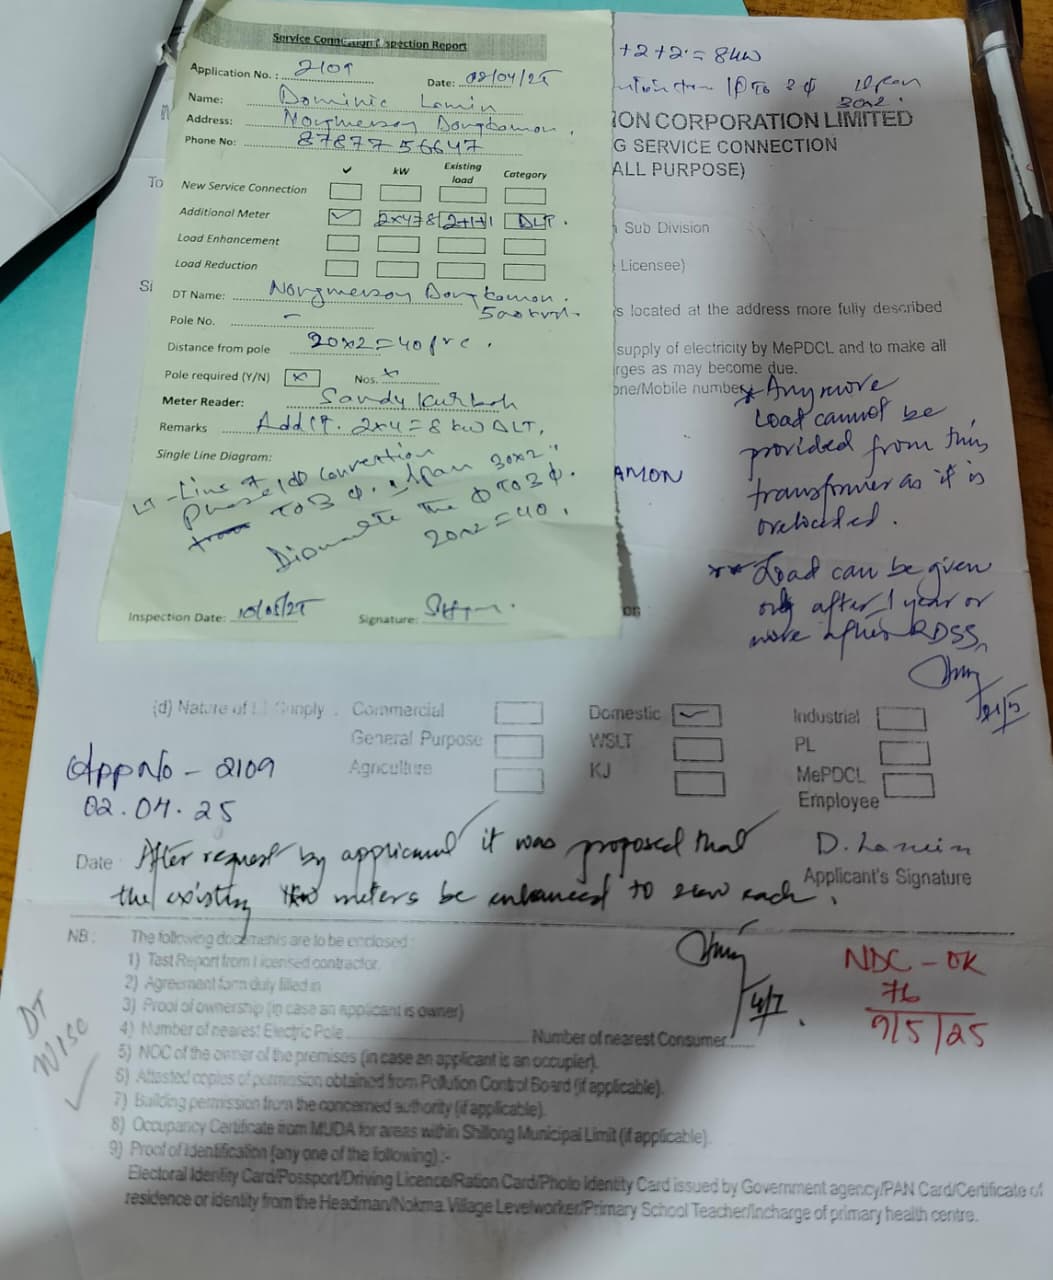 Service Connection Inspection Report
Application No. : 2109
Date: 02/04/25
Name: Dominic Lamin
Address: Nongmensong Dongkamon.
Phone No: 8787756647
✓ kW Existing load Category
New Service Connection
Additional Meter ✓ 2x4=8 2+1+1 DLT.
Load Enhancement
Load Reduction
DT Name: Nongmensong Dongkamon.
500kva.
Pole No. –
Distance from pole 20x2=40
Pole required (Y/N) x Nos. x
Meter Reader: Sandy Kurbah
Remarks Addl. 2x4=8 kW DLT.
Single Line Diagram:
LT-Line
Phase 1Φ convertion
to 3 Φ. 1span 30x2"
Dismantle the Φ to 3Φ.
20x2=40.
Inspection Date: 10/05/25
Signature:
+2+2=8kw
1Φ to 3 Φ 1span
30x2.
ION CORPORATION LIMITED
G SERVICE CONNECTION
ALL PURPOSE)
To
Sub Division
Licensee)
s located at the address more fully described
supply of electricity by MePDCL and to make all
rges as may become due.
one/Mobile number
* Anymore
Load cannot be
provided from this
transformer as it is
overloaded.
AMON
** Load can be given
only after 1 year or
more after RDSS.
21/5
(d) Nature of LT Supply : Commercial Domestic ✓ Industrial
General Purpose WSLT PL
Agriculture KJ MePDCL
Employee
App No - 2109
02.04.25
Date After request by applicant it was proposed that
the existing two meters be enhanced to 2kw each.
D. Lamin
Applicant's Signature
4/7.
NDC - OK
76
9/5/25
DT
WISE
✓
NB : The following documents are to be enclosed:
1) Test Report from Licensed contractor.
2) Agreement form duly filled in
3) Proof of ownership (in case an applicant is owner)
4) Number of nearest Electric Pole Number of nearest Consumer
5) NOC of the owner of the premises (in case an applicant is an occupier).
6) Attested copies of permission obtained from Pollution Control Board (if applicable).
7) Building permission from the concerned authority (if applicable).
8) Occupancy Certificate from MUDA for areas within Shillong Municipal Limit (if applicable).
9) Proof of Identification (any one of the following):-
Electoral Identity Card/Possport/Driving Licence/Ration Card/Photo Identity Card issued by Government agency/PAN Card/Certificate of
residence or identity from the Headman/Nokma Village Levelworker/Primary School Teacher/Incharge of primary health centre.